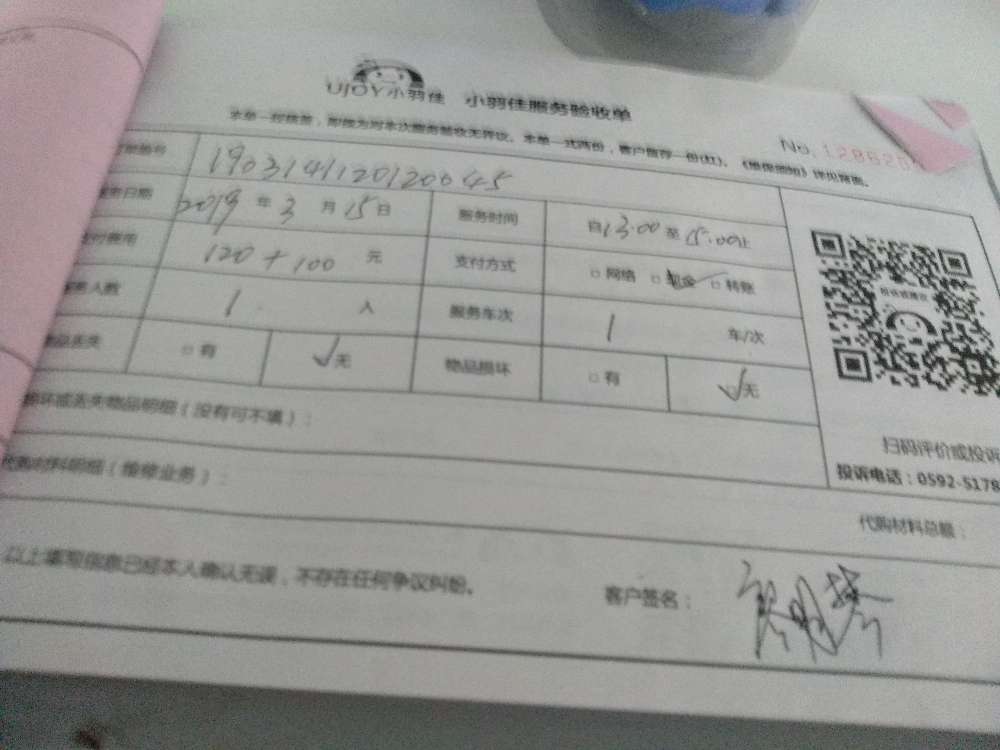 UJOY小羽佳 小羽佳服务验收单
本单一经签署,即视为对本次服务验收无异议。本单一式两份,客户留存一份(红)。《维保须知》详见背面。
No.
编号 1903141120120045
日期 2019年3月15日 服务时间 自13:00至15:00止
付费用 120+100 元 支付方式 网络 现金 转账
人数 1 人 服务车次 1 车/次
物品丢失 有 无 物品损坏 有 无
损坏或丢失物品明细(没有可不填):
代购材料明细(维修业务):
扫码评价或投诉
投诉电话:0592-5178
代购材料总额:
以上填写信息已经本人确认无误,不存在任何争议纠纷。
客户签名: